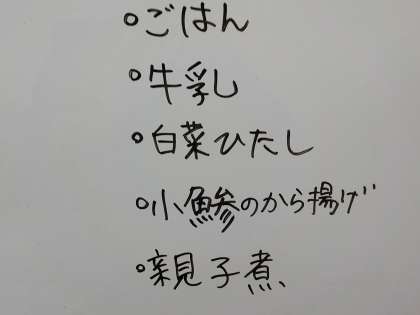 •ごはん
•牛乳
•白菜ひたし
•小鯵のから揚げ
•親子煮